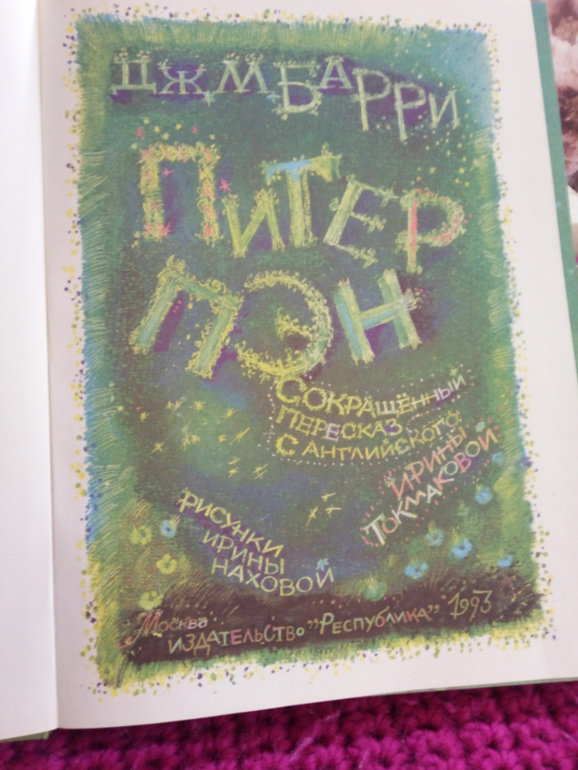 ДЖ. М. БАРРИ
ПИТЕР
ПЭН
СОКРАЩЁННЫЙ
ПЕРЕСКАЗ
С АНГЛИЙСКОГО
ИРИНЫ
ТОКМАКОВОЙ
РИСУНКИ
ИРИНЫ
НАХОВОЙ
Москва
ИЗДАТЕЛЬСТВО "РЕСПУБЛИКА" 1993